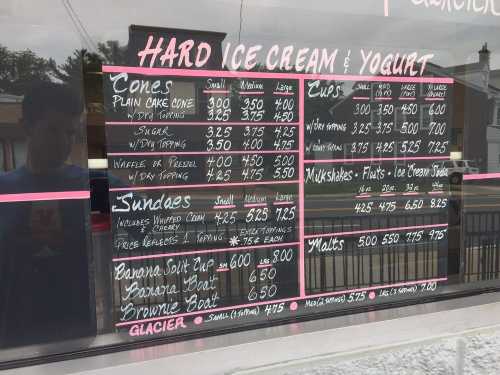 GLACIER
HARD ICE CREAM & YOGURT
CONES Small Medium Large
PLAIN CAKE CONE 3.00 3.50 4.00
W/ DRY TOPPING 3.25 3.75 4.50
SUGAR 3.25 3.75 4.25
W/ DRY TOPPING 3.50 4.00 4.75
WAFFLE OR PRETZEL 4.00 4.50 5.00
W/ DRY TOPPING 4.25 4.75 5.50
SUNDAES Small Medium Large
INCLUDES WHIPPED CREAM & CHERRY 4.25 5.25 7.25
PRICE REFLECTS 1 TOPPING * EXTRA TOPPINGS 75¢ EACH
BANANA SPLIT CUP SM 6.00 LRG 8.00
BANANA BOAT 6.50
BROWNIE BOAT 6.50
CUPS SMALL MED LARGE
3.00 3.50 4.50 6.00
W/ DRY TOPPING 3.25 3.75 5.00 7.00
3.75 4.25 5.25 7.25
Milkshakes - Floats - Ice Cream Sodas
16 oz. 20 oz. 32 oz. 44 oz.
4.25 4.75 6.50 8.25
MALTS 5.00 5.50 7.75 9.75
GLACIER • SMALL (1 TOPPING) 4.75 • MED (2 TOPPINGS) 5.75 • LRG (3 TOPPINGS) 7.00